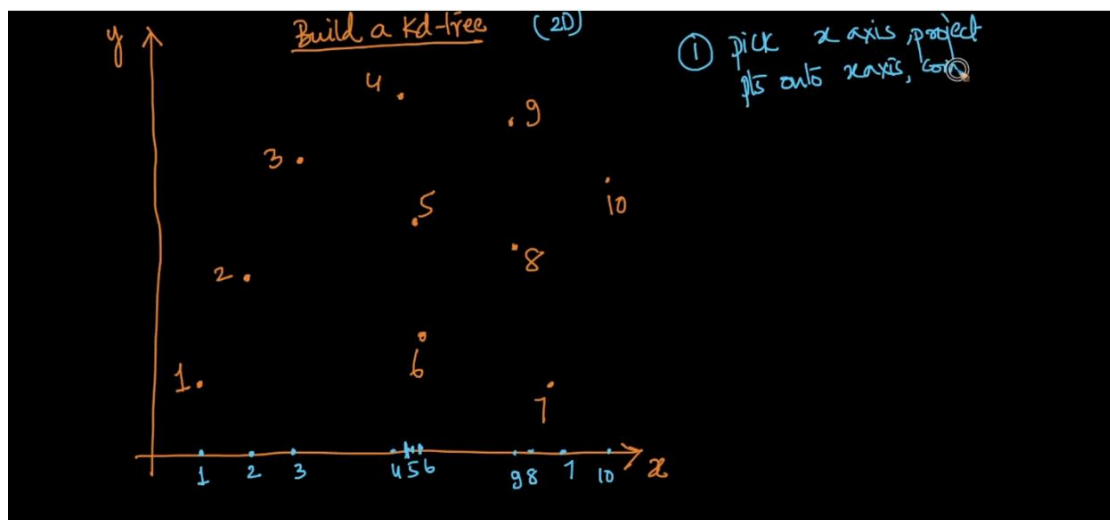 Build a Kd-tree (2D)
① pick x axis, project
pts onto x axis,
y
4
9
3
10
5
8
2
6
1
7
1 2 3 4 5 6 9 8 7 10
x